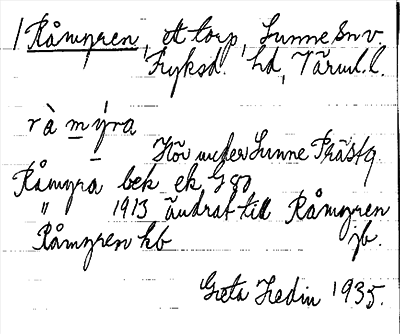 1 Råmyren, ett torp, Sunne Sn v.
Fryksd. hd, Värml. l.
rå mýra
Hör under Sunne Prästg.
Råmyra bek. ek G 80
" 1913 ändrat till Råmyren
Råmyren hb jb.
Greta Hedin 1935.